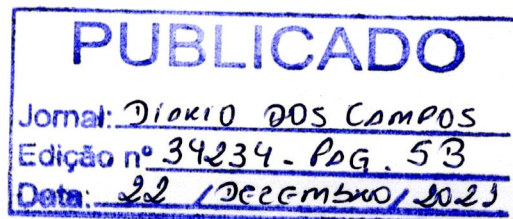 PUBLICADO
Jornal: DIARIO DOS CAMPOS
Edição nº 34234 - PAG. 5B
Data: 22 / DEZEMBRO / 2023